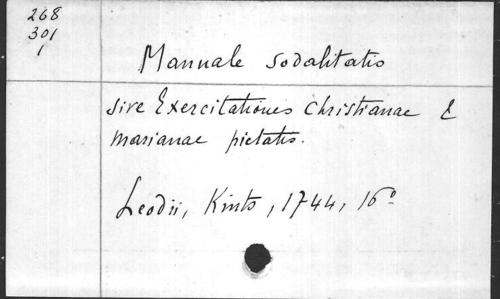 268
301
1
Manuale sodalitatis
sive Exercitationes Christianae &
marianae pietatis.
Leodii, Kints, 1744, 16°